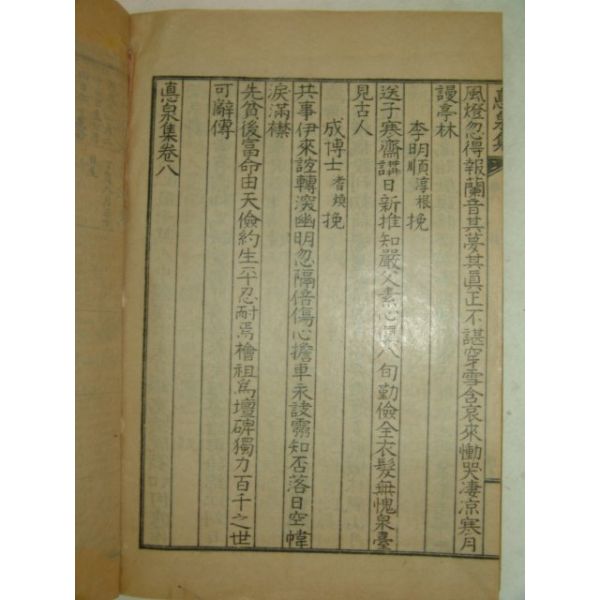 風燈忽得報蘭音其夢其眞正不諶穿雪含哀來慟哭凄凉寒月
謾亭林
李明順淳根挽
送子寒齋講日新推知嚴父素心眞八旬勤儉全衣髮無愧泉臺
見古人
成博士耆煥挽
共事伊來誼轉深幽明忽隔倍傷心擔車永訣靈知否落日空幃
淚滿襟
先貧後富命由天儉約生平忍耐焉檜祖爲壇碑獨力百千之世
可辭傳
悳泉集卷八